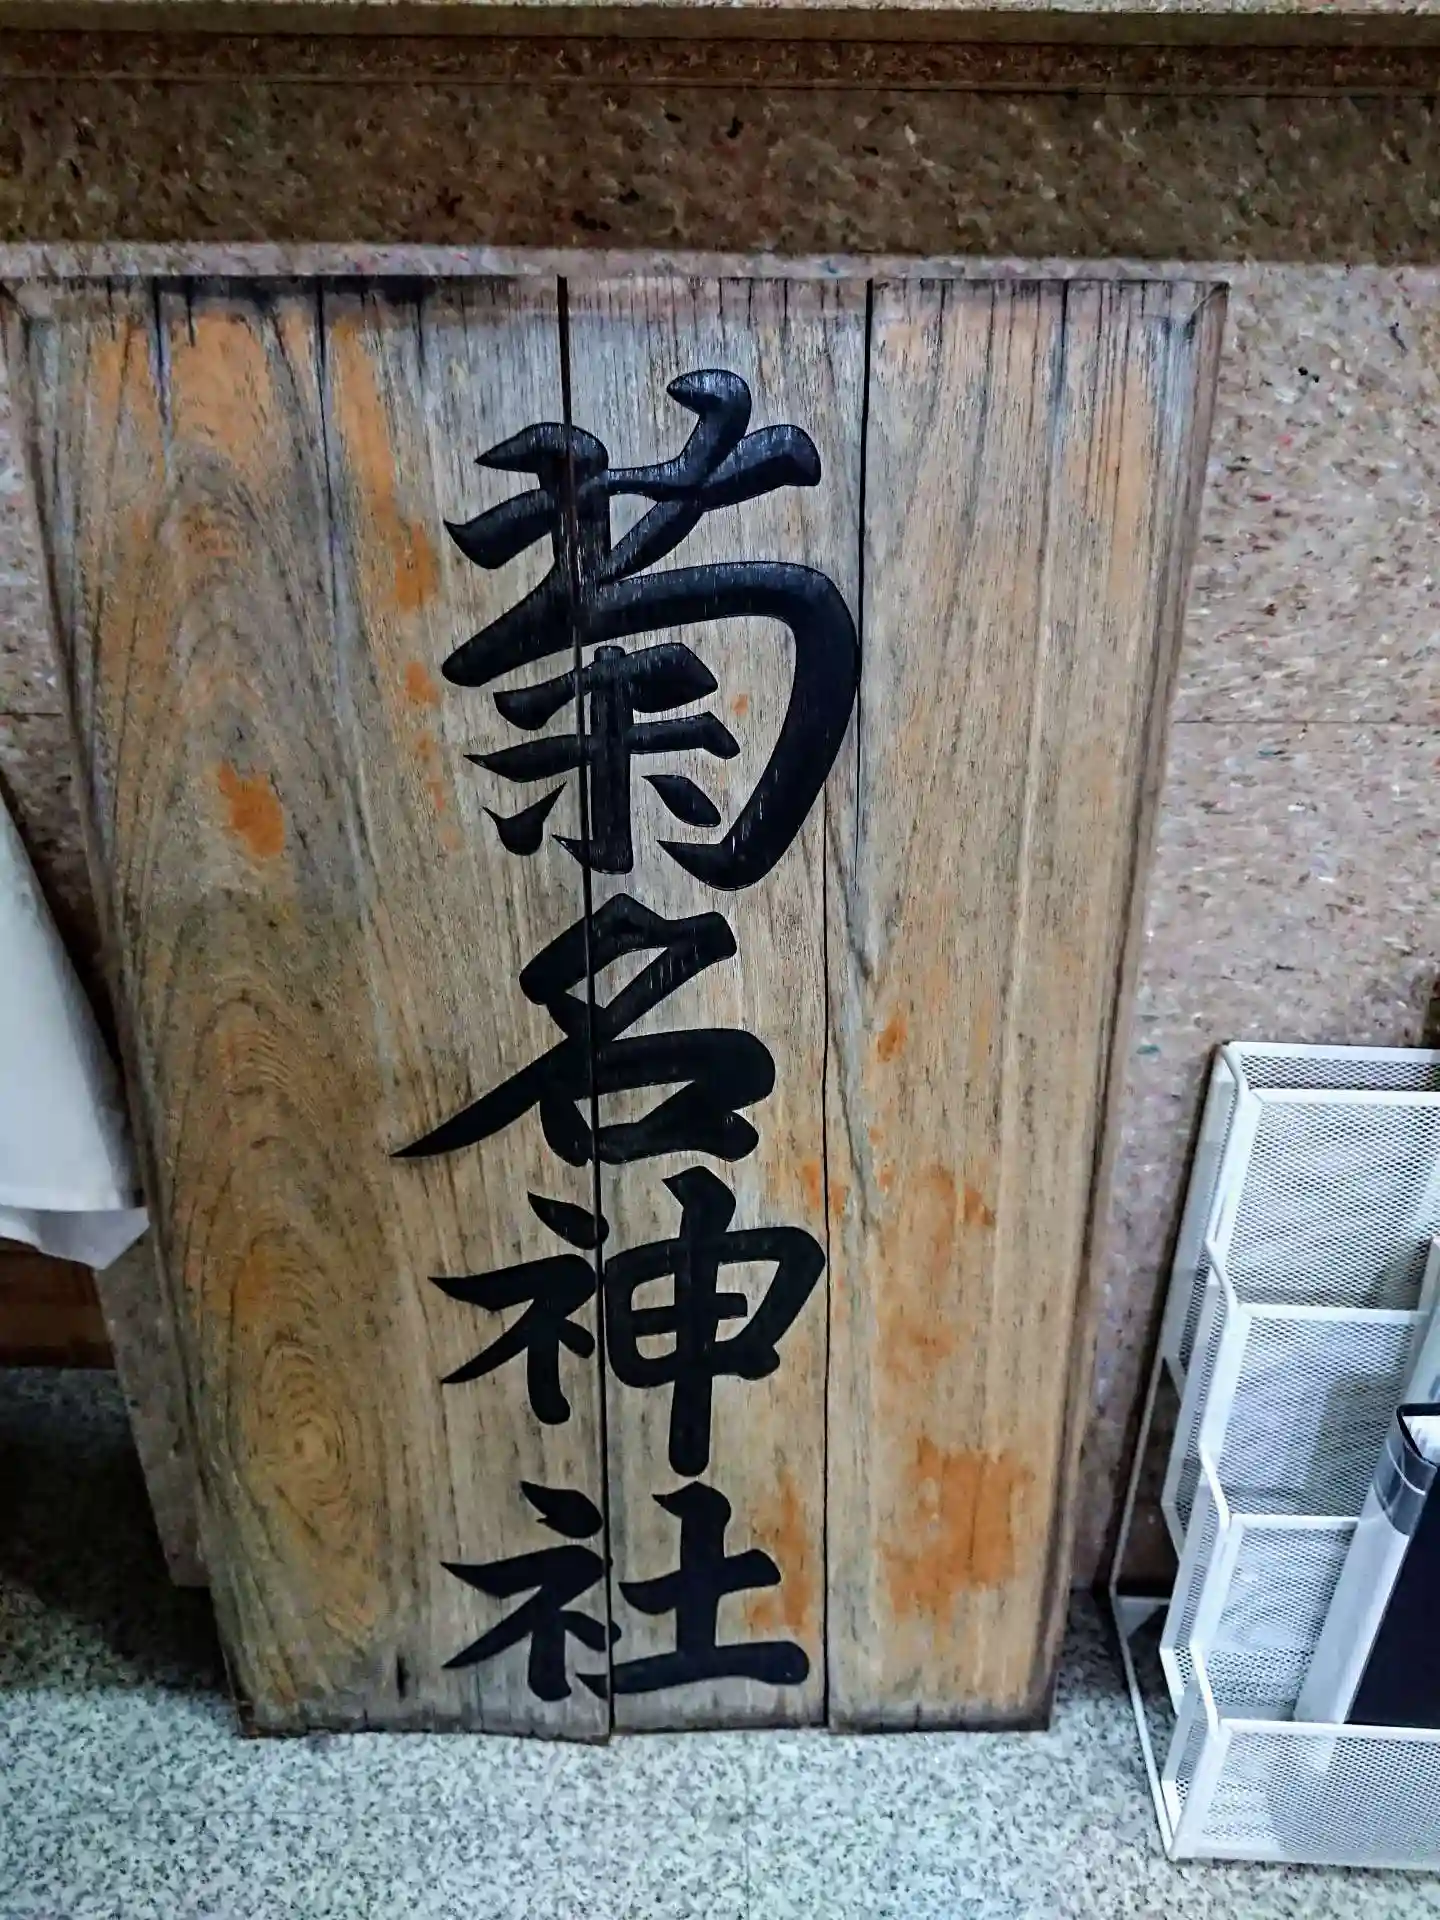 菊名神社